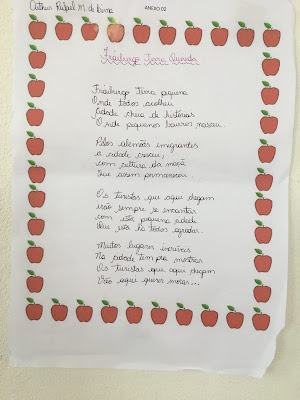 Arthur Rafael M. de Lima
ANEXO 02
Fraiburgo Terra Querida
Fraiburgo Terra pequena
Onde todos acolheu
Cidade cheia de histórias
Onde pequenos bairros nasceu.
Pelos alemães imigrantes
a cidade cresceu,
com cultura da maçã
que assim permaneceu.
Os turistas que aqui chegam
irão sempre se encantar
com esta pequena cidade
que irá a todos agradar.
Muitos lugares incríveis
Na cidade tem pra mostrar
Os turistas que aqui chegam
Vão aqui querer morar...